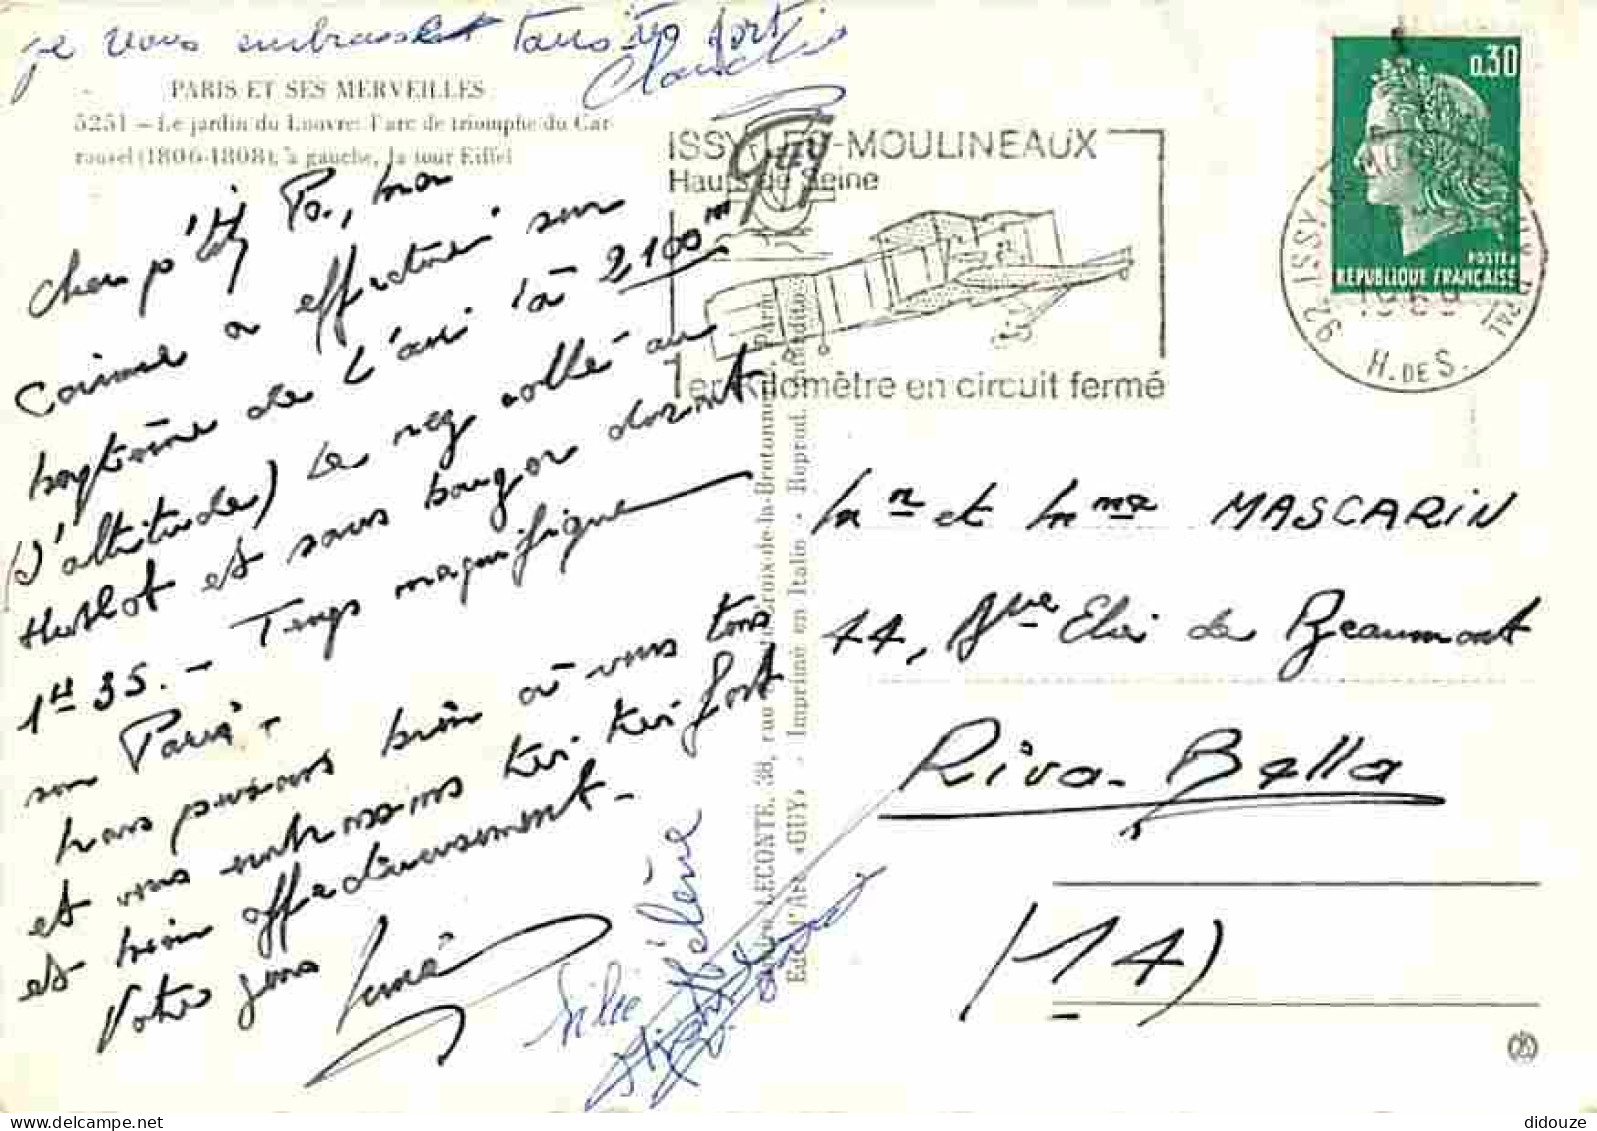 je vous embrasse tous très fort
Claudie
PARIS ET SES MERVEILLES
5251 - Le jardin du Louvre: l'arc de triomphe du Car-
rousel (1806-1808); à gauche, la tour Eiffel
Cher p'tit Pa, 
a effectué son
baptême de l'air (à 2100 m
d'altitude) Le nez collé au
Hublot et sans bouger durant
1H 35. - Temps magnifique
sur Paris -
Nous pensons bien à vous tous
et vous embrassons très très fort
et bien affectueusement -
Votre
Hélène
ISSY-LES-MOULINEAUX
Hauts de Seine
1er Kilomètre en circuit fermé
0,30
POSTES
REPUBLIQUE FRANÇAISE
92 ISSY-LES-MOULINEAUX PPAL
1969
H. DE S.
LECONTE, 38, rue Ste-Croix-de-la-Bretonnerie, Paris
Edit. d'Art «GUY» - Imprimé en Italie - Reprod. interdite
Mr et Mme MASCARIN
44, Ave Eloi de Beaumont
Riva-Bella
(14)
didouze